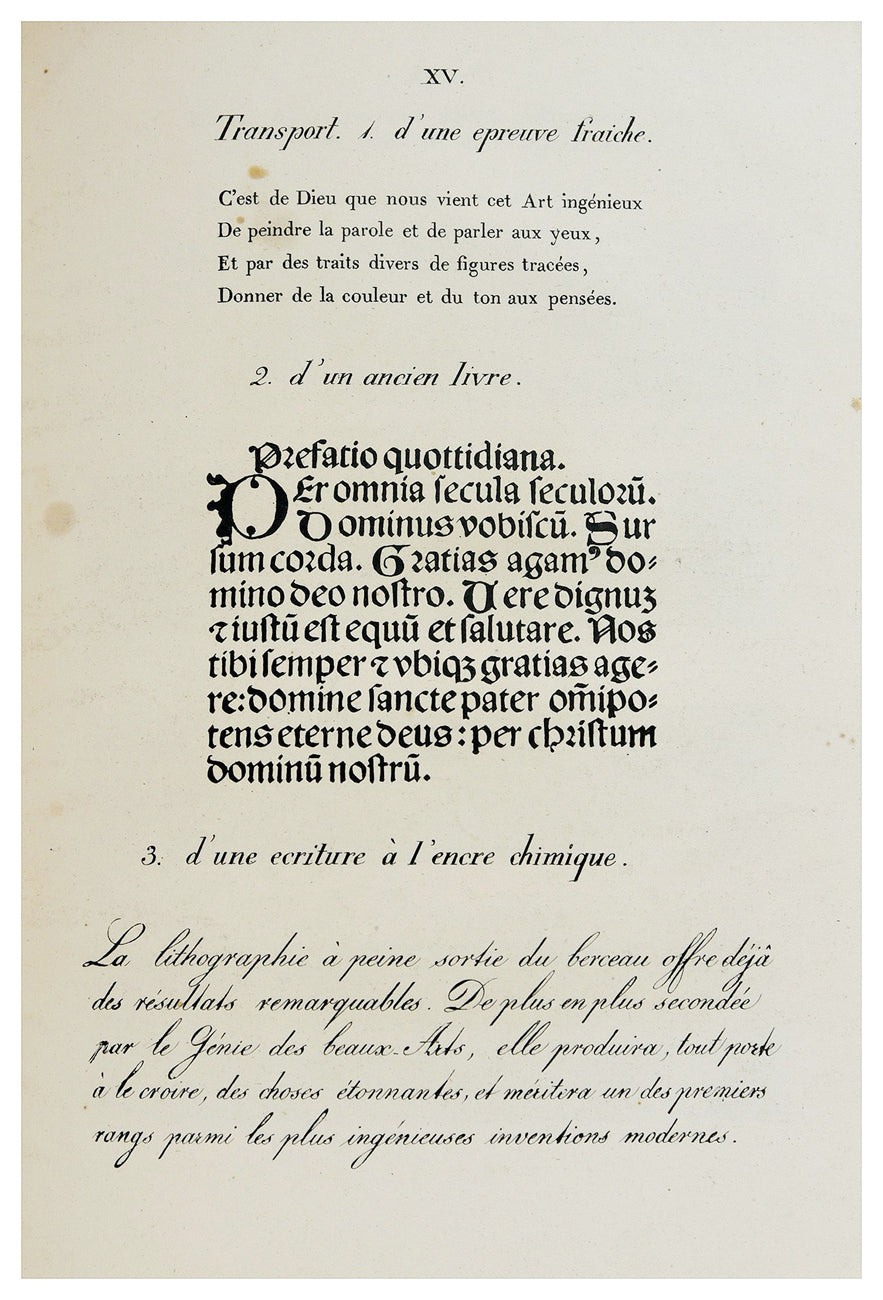 XV.
Transport. 1. d'une epreuve fraiche.
C'est de Dieu que nous vient cet Art ingénieux
De peindre la parole et de parler aux yeux,
Et par des traits divers de figures tracées,
Donner de la couleur et du ton aux pensées.
2. d'un ancien livre.
Prefatio quottidiana.
PEr omnia ſecula ſeculoꝛū.
Dominus vobiſcū. Sur
ſum coꝛda. Gꝛatias agamꝰ do⸗
mino deo noſtro. Uere dignuʒ
⁊ iuſtū eſt equū et ſalutare. Nos
tibi ſemper ⁊ vbiqꝫ gratias age⸗
re: domine ſancte pater om̄ipo⸗
tens eterne deus: per chꝛiſtum
dominū noſtrū.
3. d'une ecriture à l'encre chimique.
La lithographie à peine sortie du berceau offre déjâ
des résultats remarquables. De plus en plus secondée
par le Génie des beaux-Arts, elle produira, tout porte
à le croire, des choses étonnantes, et méritera un des premiers
rangs parmi les plus ingénieuses inventions modernes.